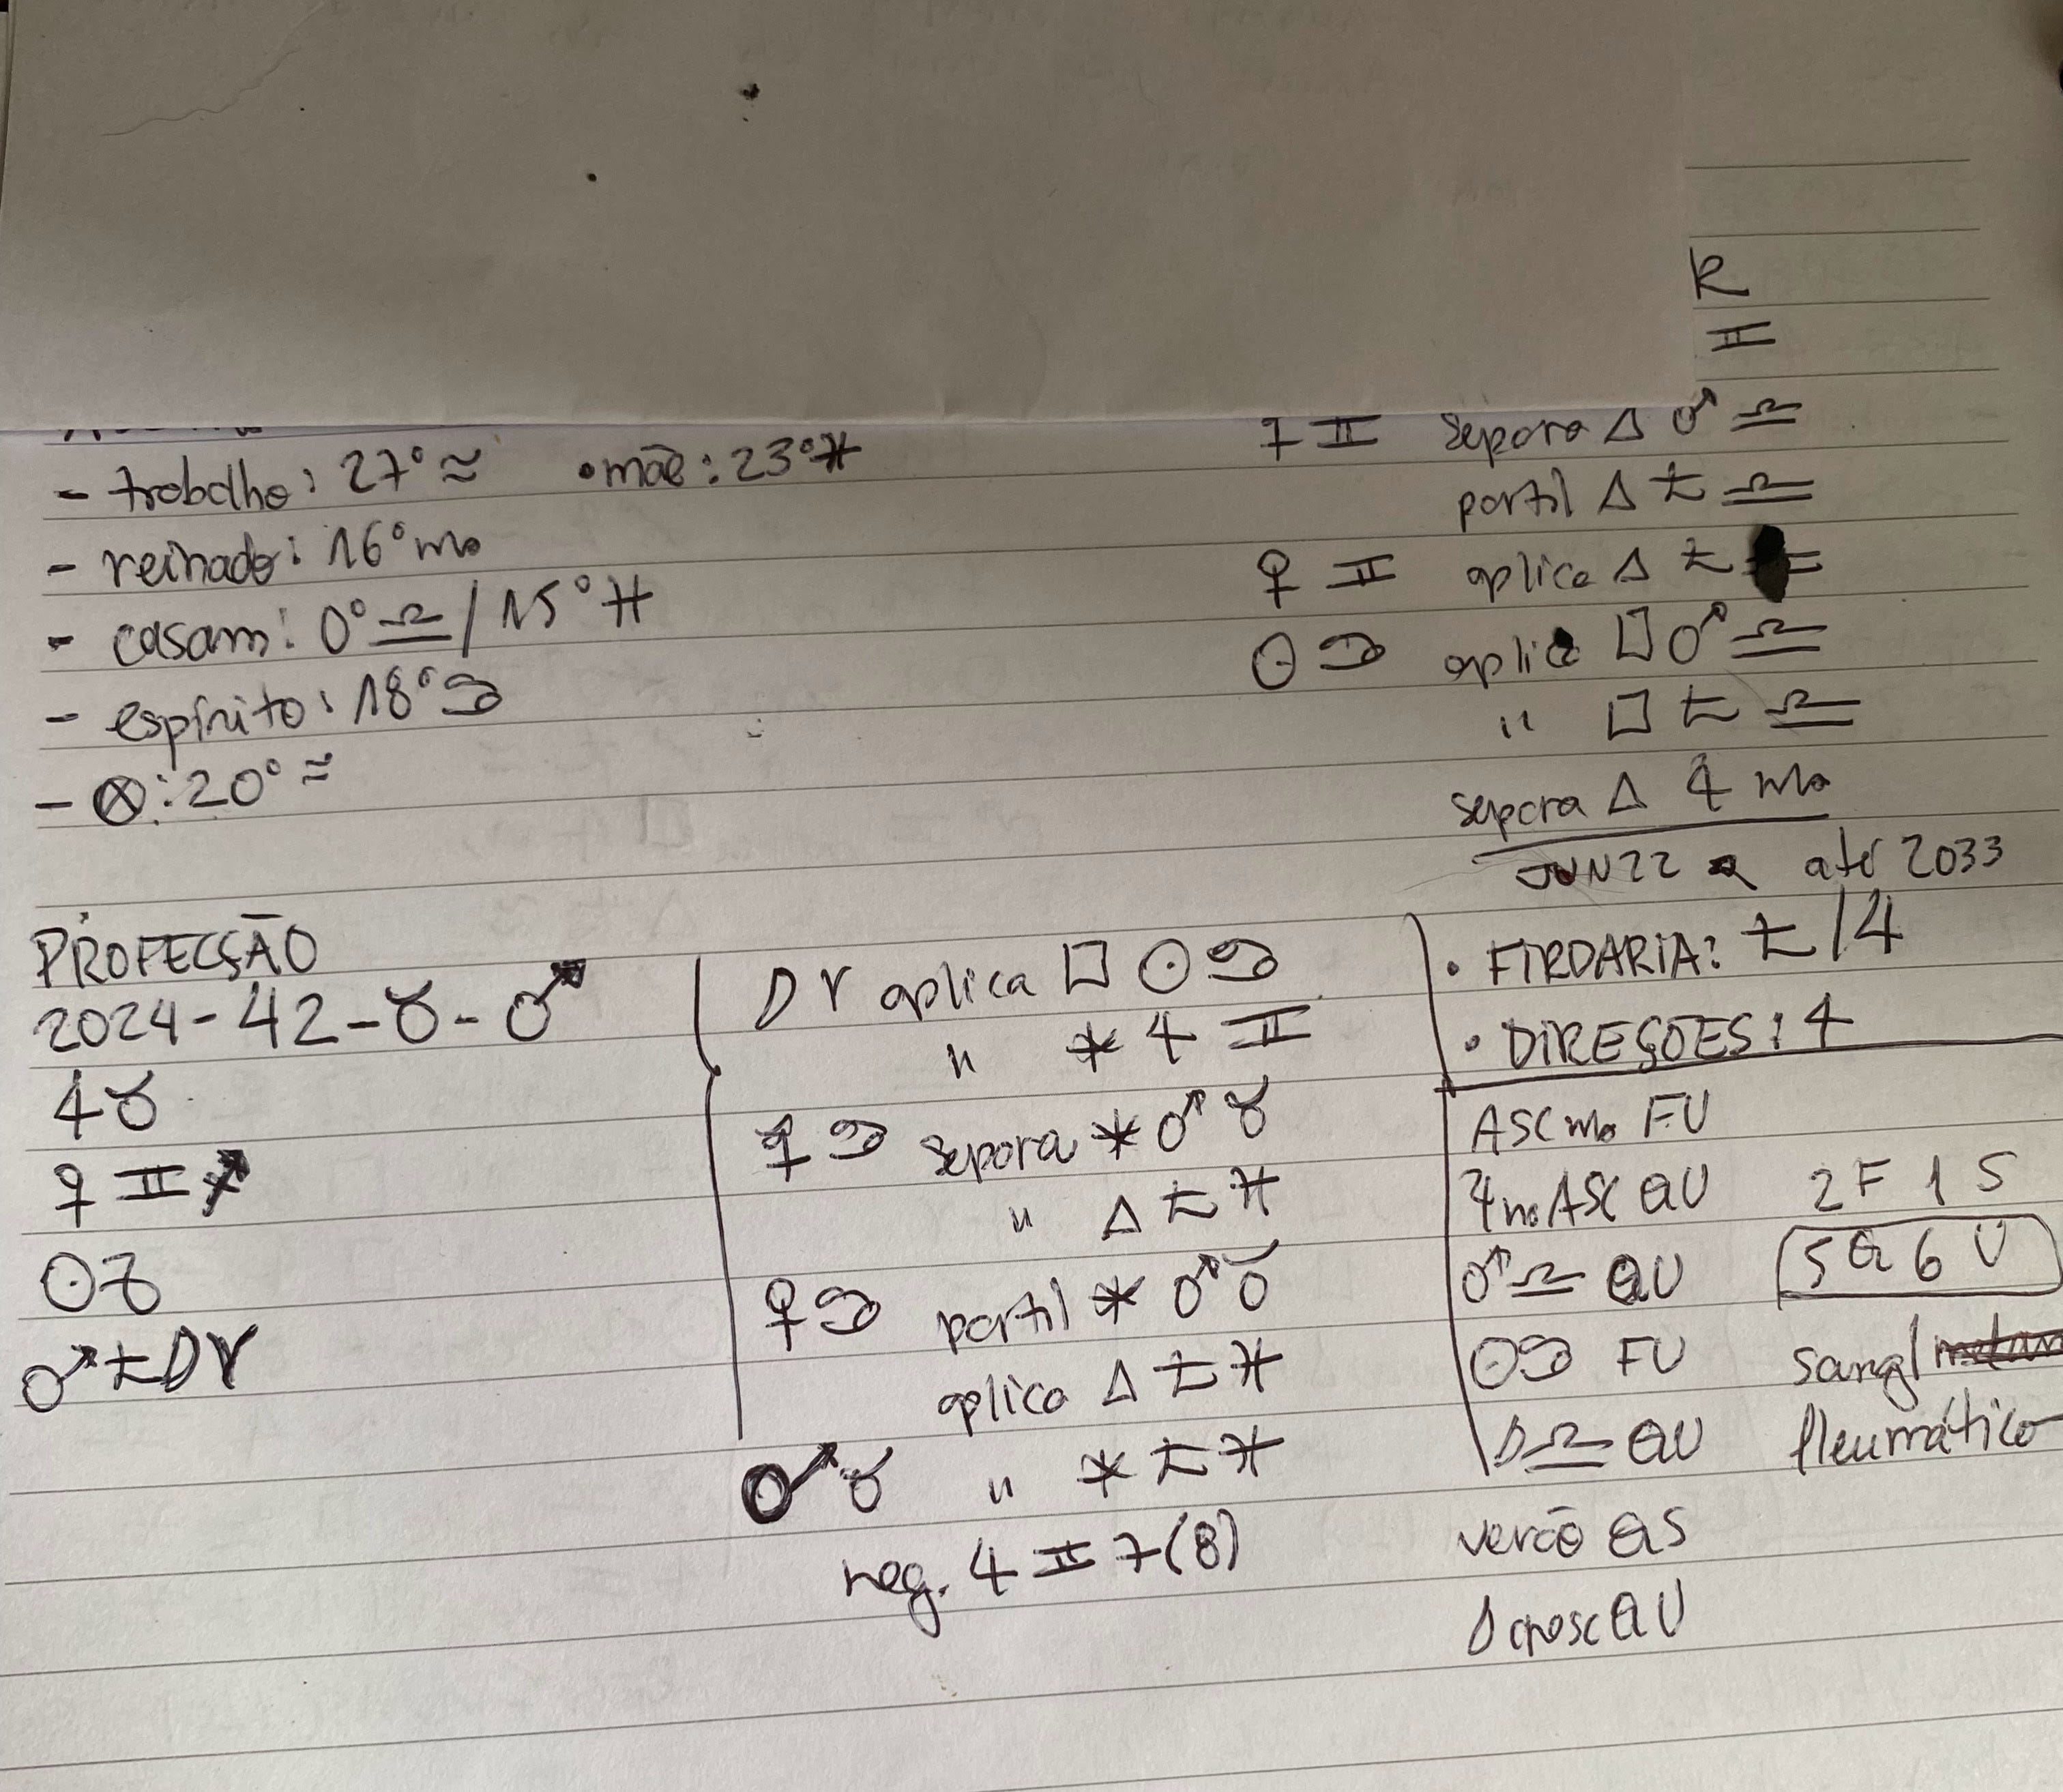 R
♊
☿ ♊ separa △ ♂ ♎
partil △ ♄ ♎
♀ ♊ aplica △ ♄
☉ ♋ aplica □ ♂ ♎
" □ ♄ ♎
separa △ ♃ ♏
JUN 22 até 2033
- trabalho: 27° ♒ • mãe: 23° ♓
- reinado: 16° ♏
- casam: 0° ♎ / 15° ♓
- espírito: 18° ♋
- ⊗: 20° ♒
PROFECÇÃO
2024 - 42 - ♉ - ♂
♃ ♉
☿ ♊
☉
♂ ♄ ☽ ♈
☽ ♈ aplica □ ☉ ♋
" ⚹ ♃ ♊
☿ ♋ separa ⚹ ♂ ♉
" △ ♄ ♓
♀ ♋ partil ⚹ ♂ ♉
aplica △ ♄ ♓
♂ ♉ " ⚹ ♄ ♓
reg. ♃ ♊ 7 (8)
• FIRDARIA: ♄ / ♃
• DIREÇÕES: ♃
ASC ♏ FU
♃ no ASC QU 2 F 1 S
♂ ♎ QU 5 Q 6 U
☉ ♋ FU sang/
☽ ♎ QU fleumático
verão QS
☽ cresc QU